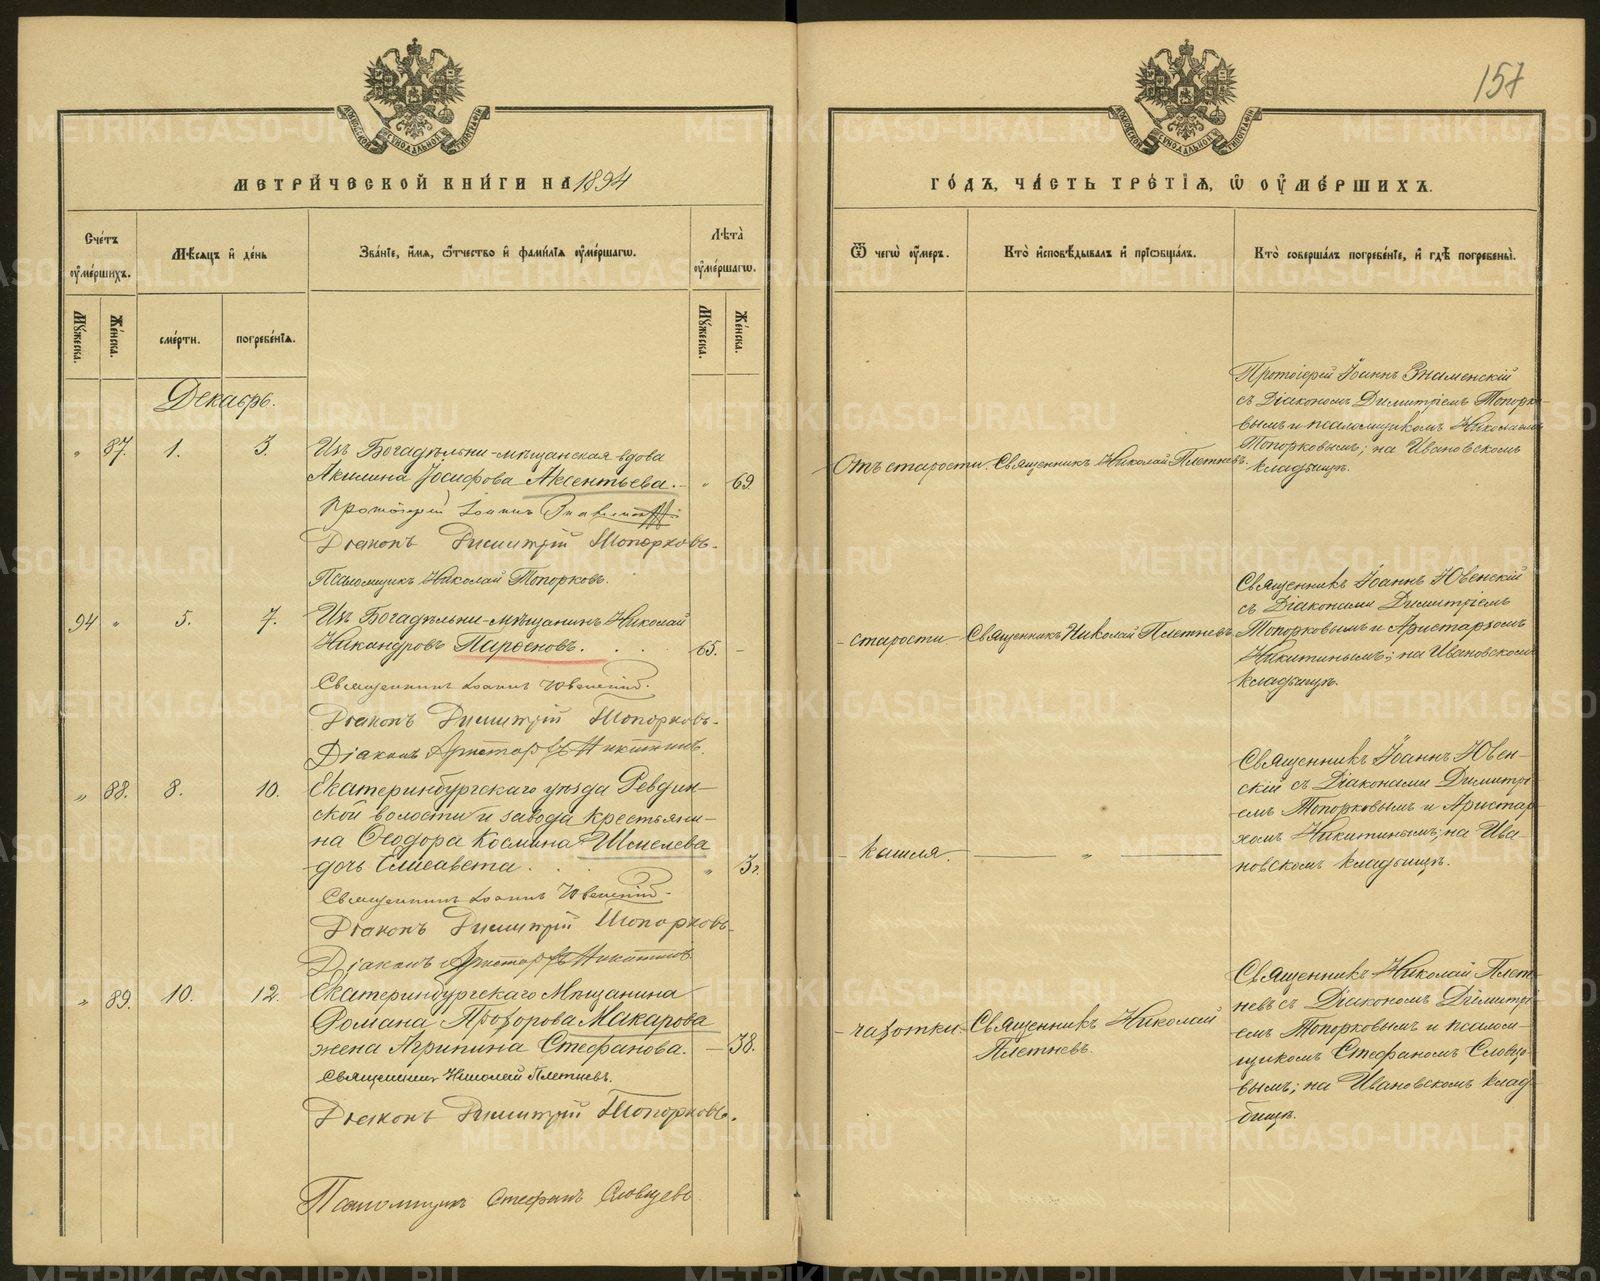 157
МОСКОВСКОЙ СѴНОДАЛЬНОЙ ТИПОГРАФІИ
МОСКОВСКОЙ СѴНОДАЛЬНОЙ ТИПОГРАФІИ
МЕТРИ́ЧЕСКОЙ КНИ́ГИ НА 1894
ГО́ДЪ, ЧА́СТЬ ТРЕ́ТІѦ, Ѿ ОУ҆МЕ́РШИХЪ.
Сче́тъ оу҆ме́ршихъ.
Мѣ́сѧцъ и҆ де́нь
Зва́ніе, и҆́мѧ, ѻ҆́тчество и҆ фами́ліѧ оу҆ме́ршагѡ.
Лѣ́та̀ оу҆ме́ршагѡ.
Ѿ чегѡ̀ оу҆́мер.
Кто̀ и҆сповѣ́дывалъ и҆ прїѻбща́лъ.
Кто̀ соверша́лъ погребе́ніе, и҆ гдѣ̀ погребены̀.
Му́жеска.
Же́нска.
сме́рти.
погребе́нїѧ.
Му́жеска.
Же́нска.
Декабрь.
„ 87. 1. 3. Изъ Богадѣльни-мѣщанская вдова
Акилина Іосифова Аксентьева. - „ 69.
Протоіерей Іоаннъ Знаменскій
Діаконъ Димитрій Топорковъ.
Псаломщикъ Николай Топорковъ.
Отъ старости. Священникъ Николай Плетневъ.
Протоіерей Іоаннъ Знаменскій
съ Діакономъ Димитріемъ Топорко-
вымъ и псаломщикомъ Николаемъ
Топорковымъ; на Ивановскомъ
кладбищѣ.
94 „ 5. 7. Изъ Богадѣльни-мѣщанинъ Николай
Никандровъ Парѳеновъ. . . . 65. -
Священникъ Іоаннъ Ювенскій.
Діаконъ Димитрій Топорковъ.
Діаконъ Аристархъ Никитинъ.
- старости Священникъ Николай Плетневъ
Священникъ Іоаннъ Ювенскій
съ Діаконами Димитріемъ
Топорковымъ и Аристархомъ
Никитинымъ; на Ивановскомъ
кладбищѣ.
„ 88. 8. 10. Екатеринбургскаго уѣзда Ревдин-
ской волости и завода крестьяни-
на Ѳеодора Космина Шмелева
дочь Елисавета. . . „ 3.
Священникъ Іоаннъ Ювенскій.
Діаконъ Димитрій Топорковъ.
Діаконъ Аристархъ Никитинъ
- кашля. — „ —
Священникъ Іоаннъ Ювен-
скій съ Діаконами Димитрі-
емъ Топорковымъ и Аристар-
хомъ Никитинымъ; на Ива-
новскомъ кладбищѣ.
„ 89. 10. 12. Екатеринбургскаго Мѣщанина
Романа Прохорова Макарова
жена Агрипина Стефанова. — 38.
Священникъ Николай Плетневъ.
Діаконъ Димитрій Топорковъ.
Псаломщикъ Стефанъ Словцевъ
- чахотки Священникъ Николай
Плетневъ.
Священникъ Николай Плет-
невъ съ Діакономъ Димитрі-
емъ Топорковымъ и псалом-
щикомъ Стефаномъ Словцо-
вымъ; на Ивановскомъ клад-
бищѣ.
METRIKI.GASO-URAL.RU